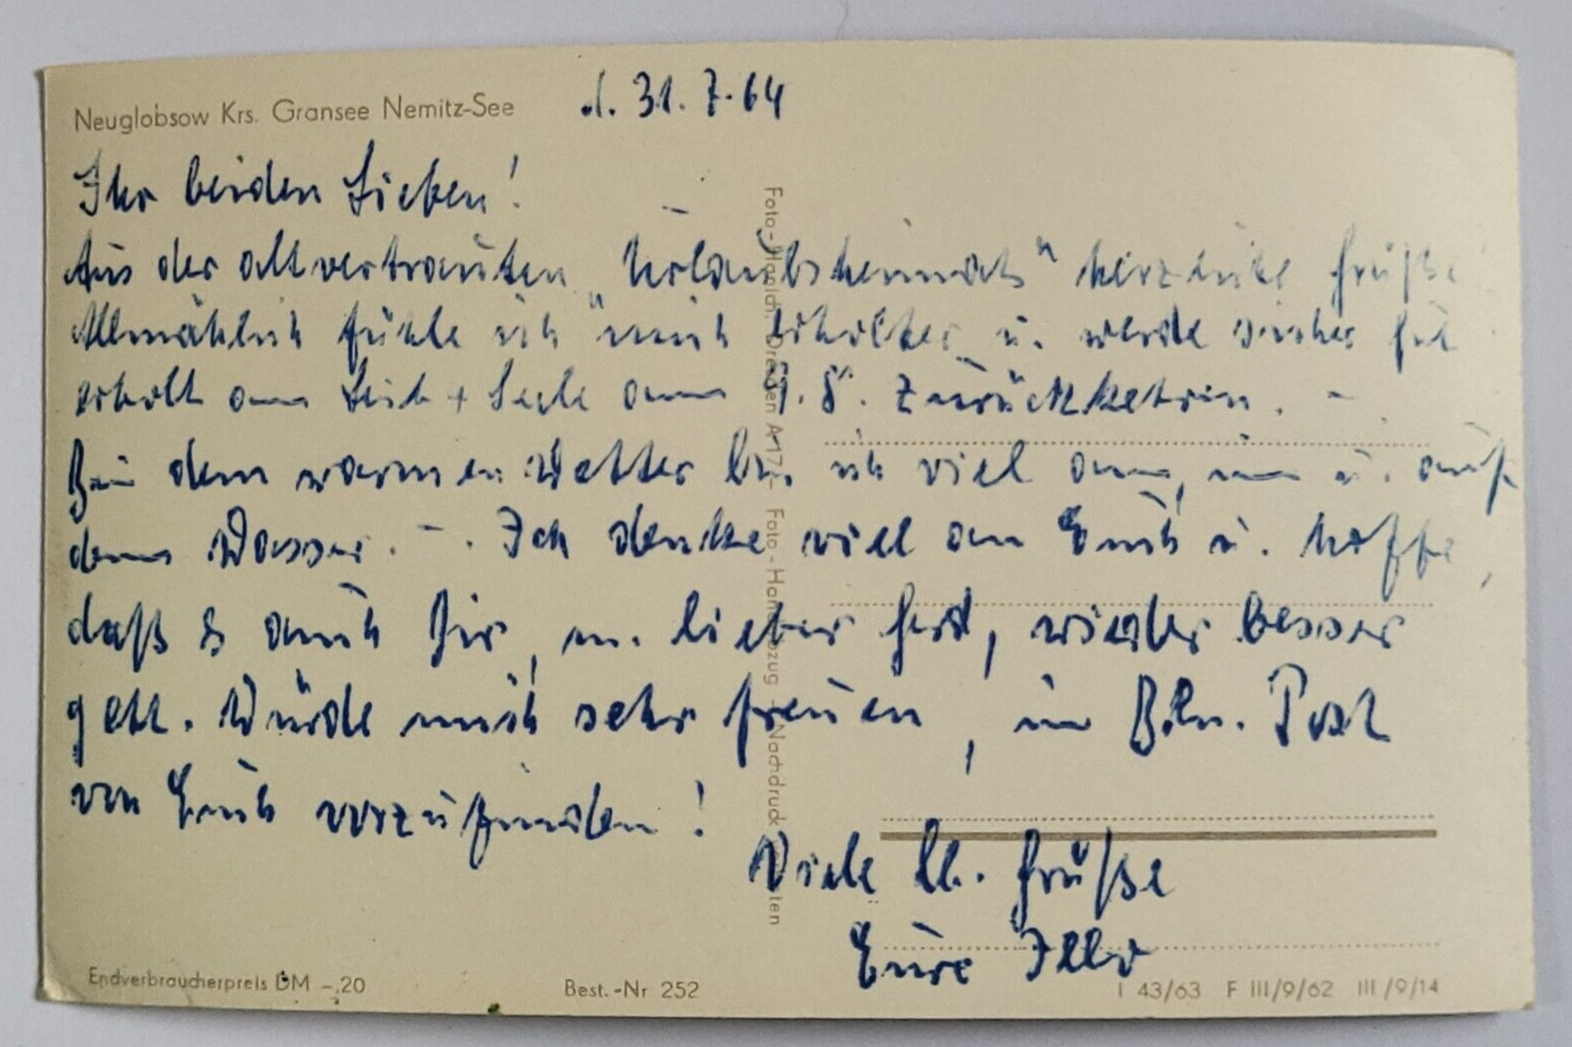 Neuglobsow Krs. Gransee Nemitz-See
d. 31.7.64
Ihr beiden Lieben!
Aus der altvertrauten „Urlaubsheimat" herzliche Grüße
Allmählich fühle ich mich erholter u. werde sicher gut
erholt an Leib + Seele am 9.8. zurückkehren. -
Bei dem warmen Wetter bin ich viel am, im u. auf
dem Wasser. - . Ich denke viel an Euch u. hoffe,
daß es auch Dir, m. lieber Gerd, wieder besser
geht. Würde mich sehr freuen, in Bln. Post
von Euch vorzufinden!
Viele lb. Grüße
Eure
Foto-Handabzug Nachdruck
Endverbraucherpreis DM -,20
Best.-Nr 252
I 43/63 F III/9/62 III/9/14